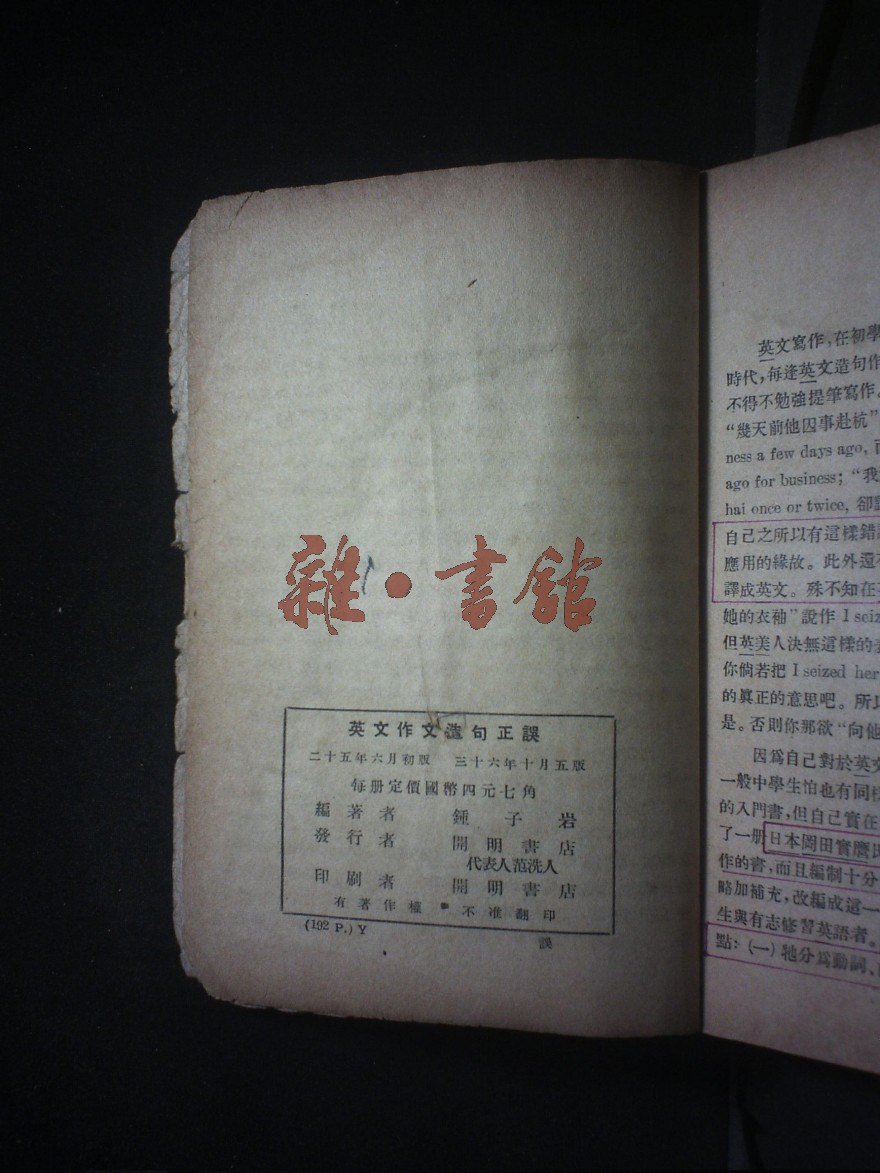 雜•書館
英文作文造句正誤
二十五年六月初版 三十六年十月五版
每册定價國幣四元七角
編著者 鍾子岩
發行者 開明書店
代表人范洗人
印刷者 開明書店
有著作權 不准翻印
(192 P.) Y
誤
英文寫作,在初學
時代,每逢英文造句作
不得不勉強提筆寫作。
“幾天前他因事赴杭”
ness a few days ago,
ago for business; “我
hai once or twice, 卻
自己之所以有這樣錯
應用的緣故。此外還
譯成英文。殊不知在
她的衣袖”說作 I seiz
但英美人決無這樣的
你倘若把 I seized her
的眞正的意思吧。所以
是。否則你那欲“向他
因爲自己對於英文
一般中學生怕也有同
的入門書,但自己實在
了一册日本岡田實麿氏
作的書,而且編制十分
略加補充,改編成這一
生與有志修習英語者。
點: (一) 牠分爲動詞、